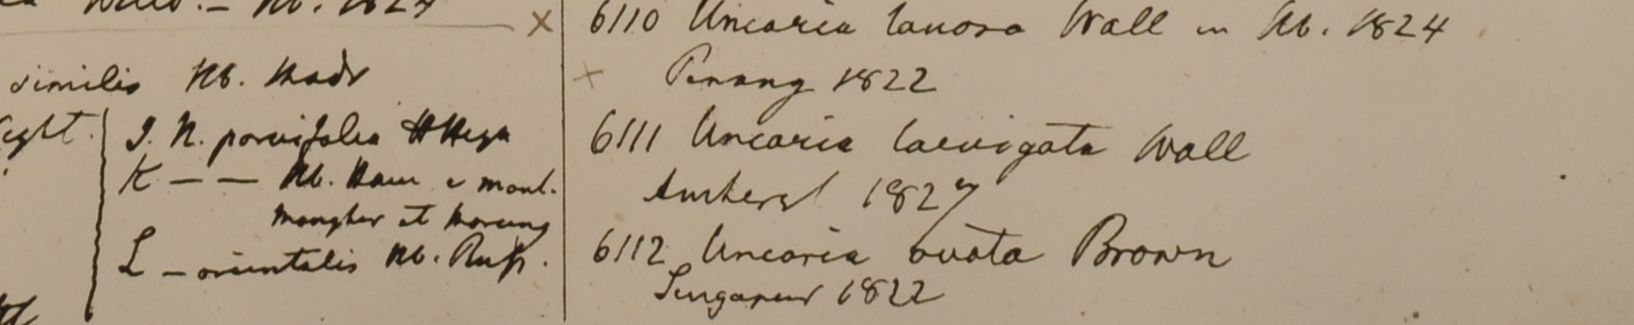 Hb. 1824
similis Hb. Madr
J. N. parvifolia Hb Heyn
K — — Hb. Ham e mont.
Mongher et Morung
L — orientalis Hb. Russ.
6110 Uncaria lanosa Wall in Hb. 1824
Penang 1822
6111 Uncaria laevigata Wall
Amherst 1827
6112 Uncaria ovata Brown
Singapur 1822